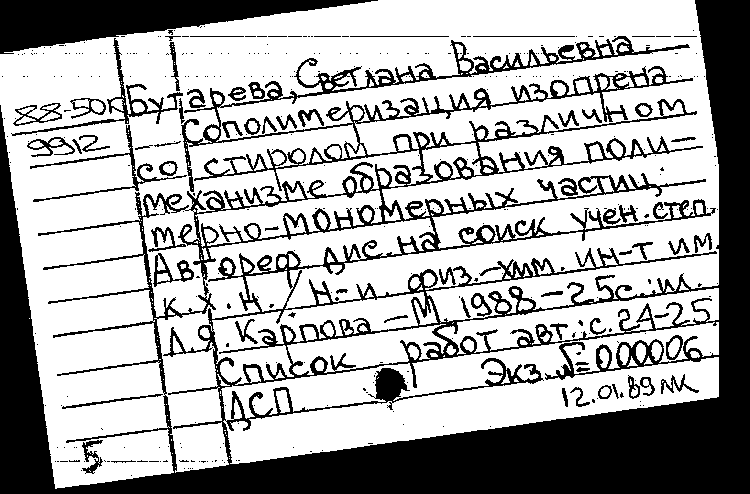 88-50к Бутарева, Светлана Васильевна.
9912 Сополимеризация изопрена
со стиролом при различном
механизме образования поли-
мерно-мономерных частиц:
Автореф. дис. на соиск учен. степ.
к. х. н. / Н.-и. физ.-хим. ин-т им.
Л.Я. Карпова - М. 1988 - 25с.: ил.
Список работ авт.: с. 24-25
Экз. № 000006
ДСП.
12.01.89
5